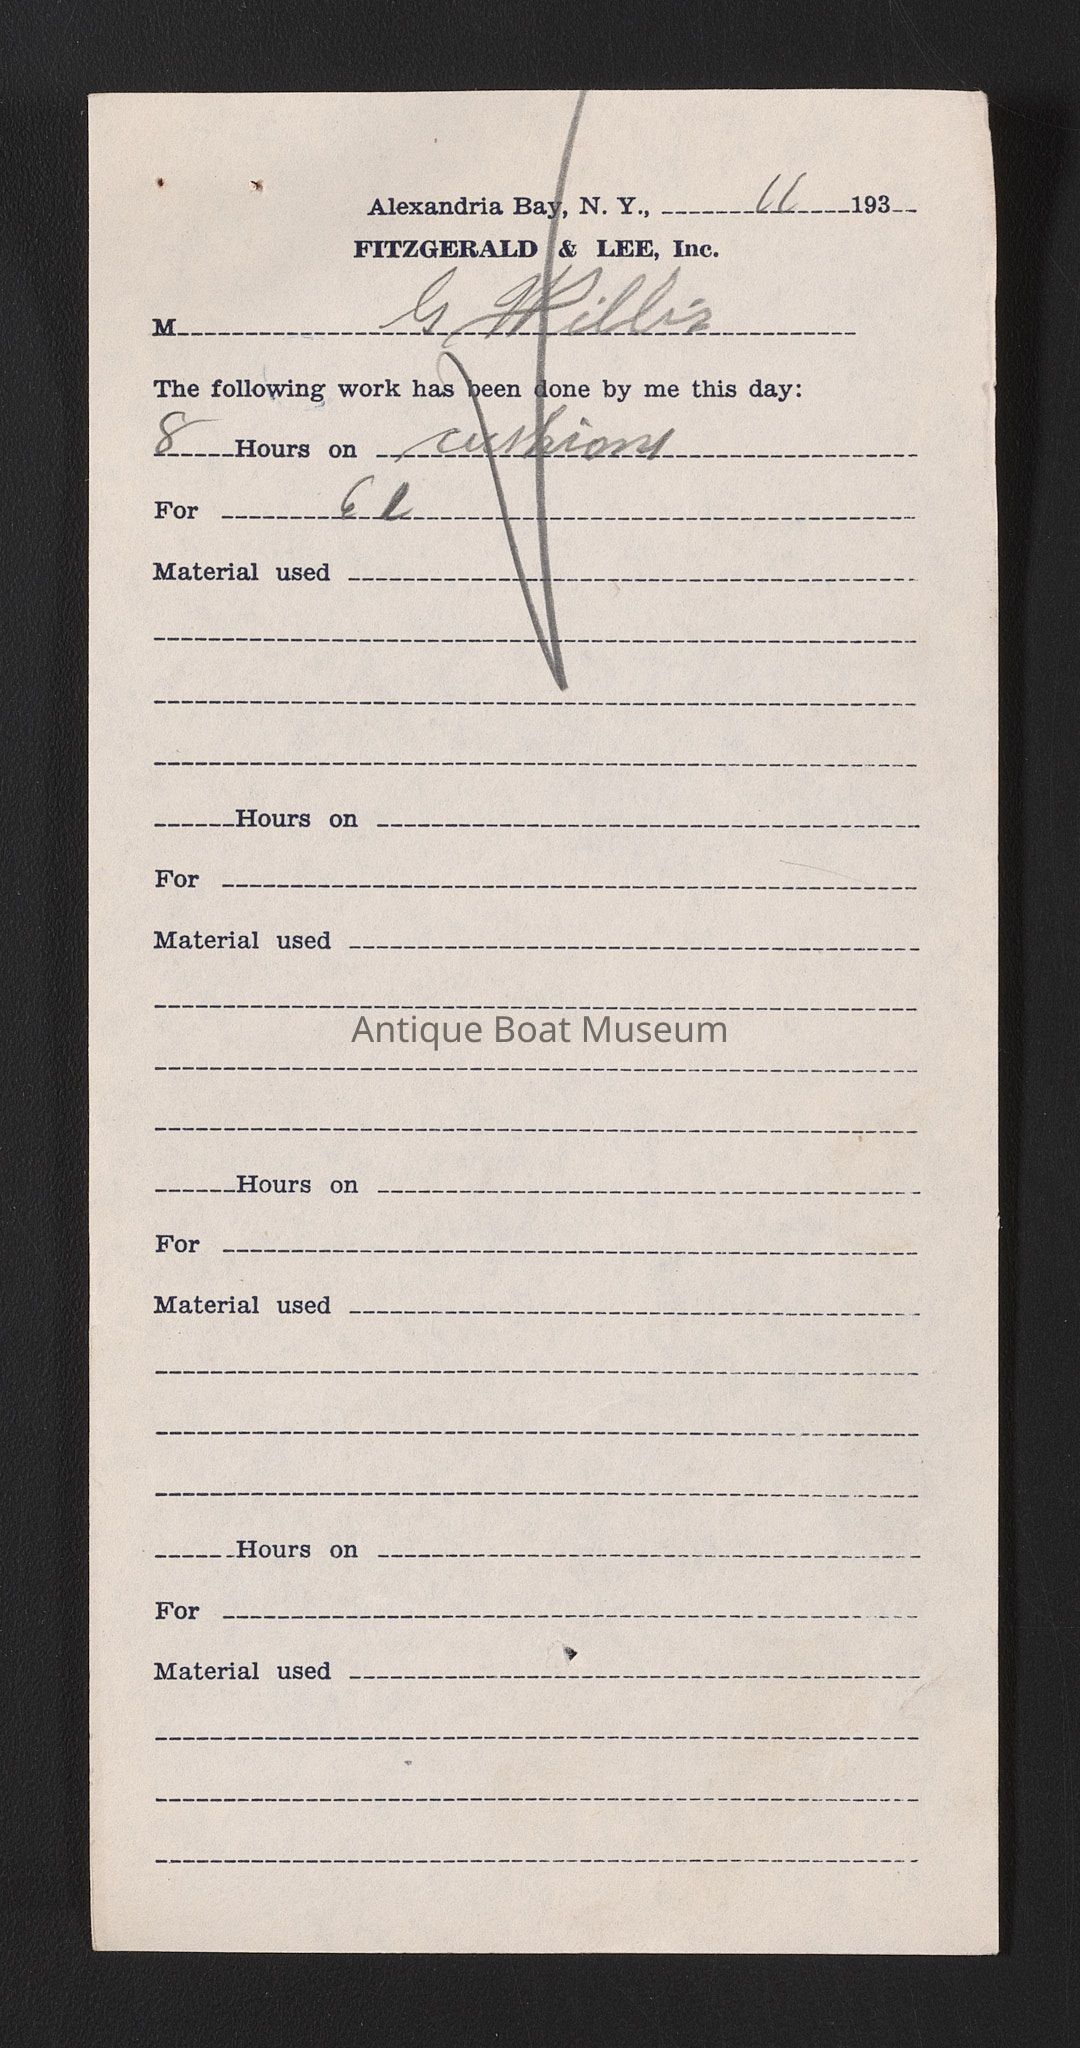 Alexandria Bay, N. Y., 11 193
FITZGERALD & LEE, Inc.
M G Willis
The following work has been done by me this day:
8 Hours on cushions
For
Material used
Hours on
For
Material used
Antique Boat Museum
Hours on
For
Material used
Hours on
For
Material used